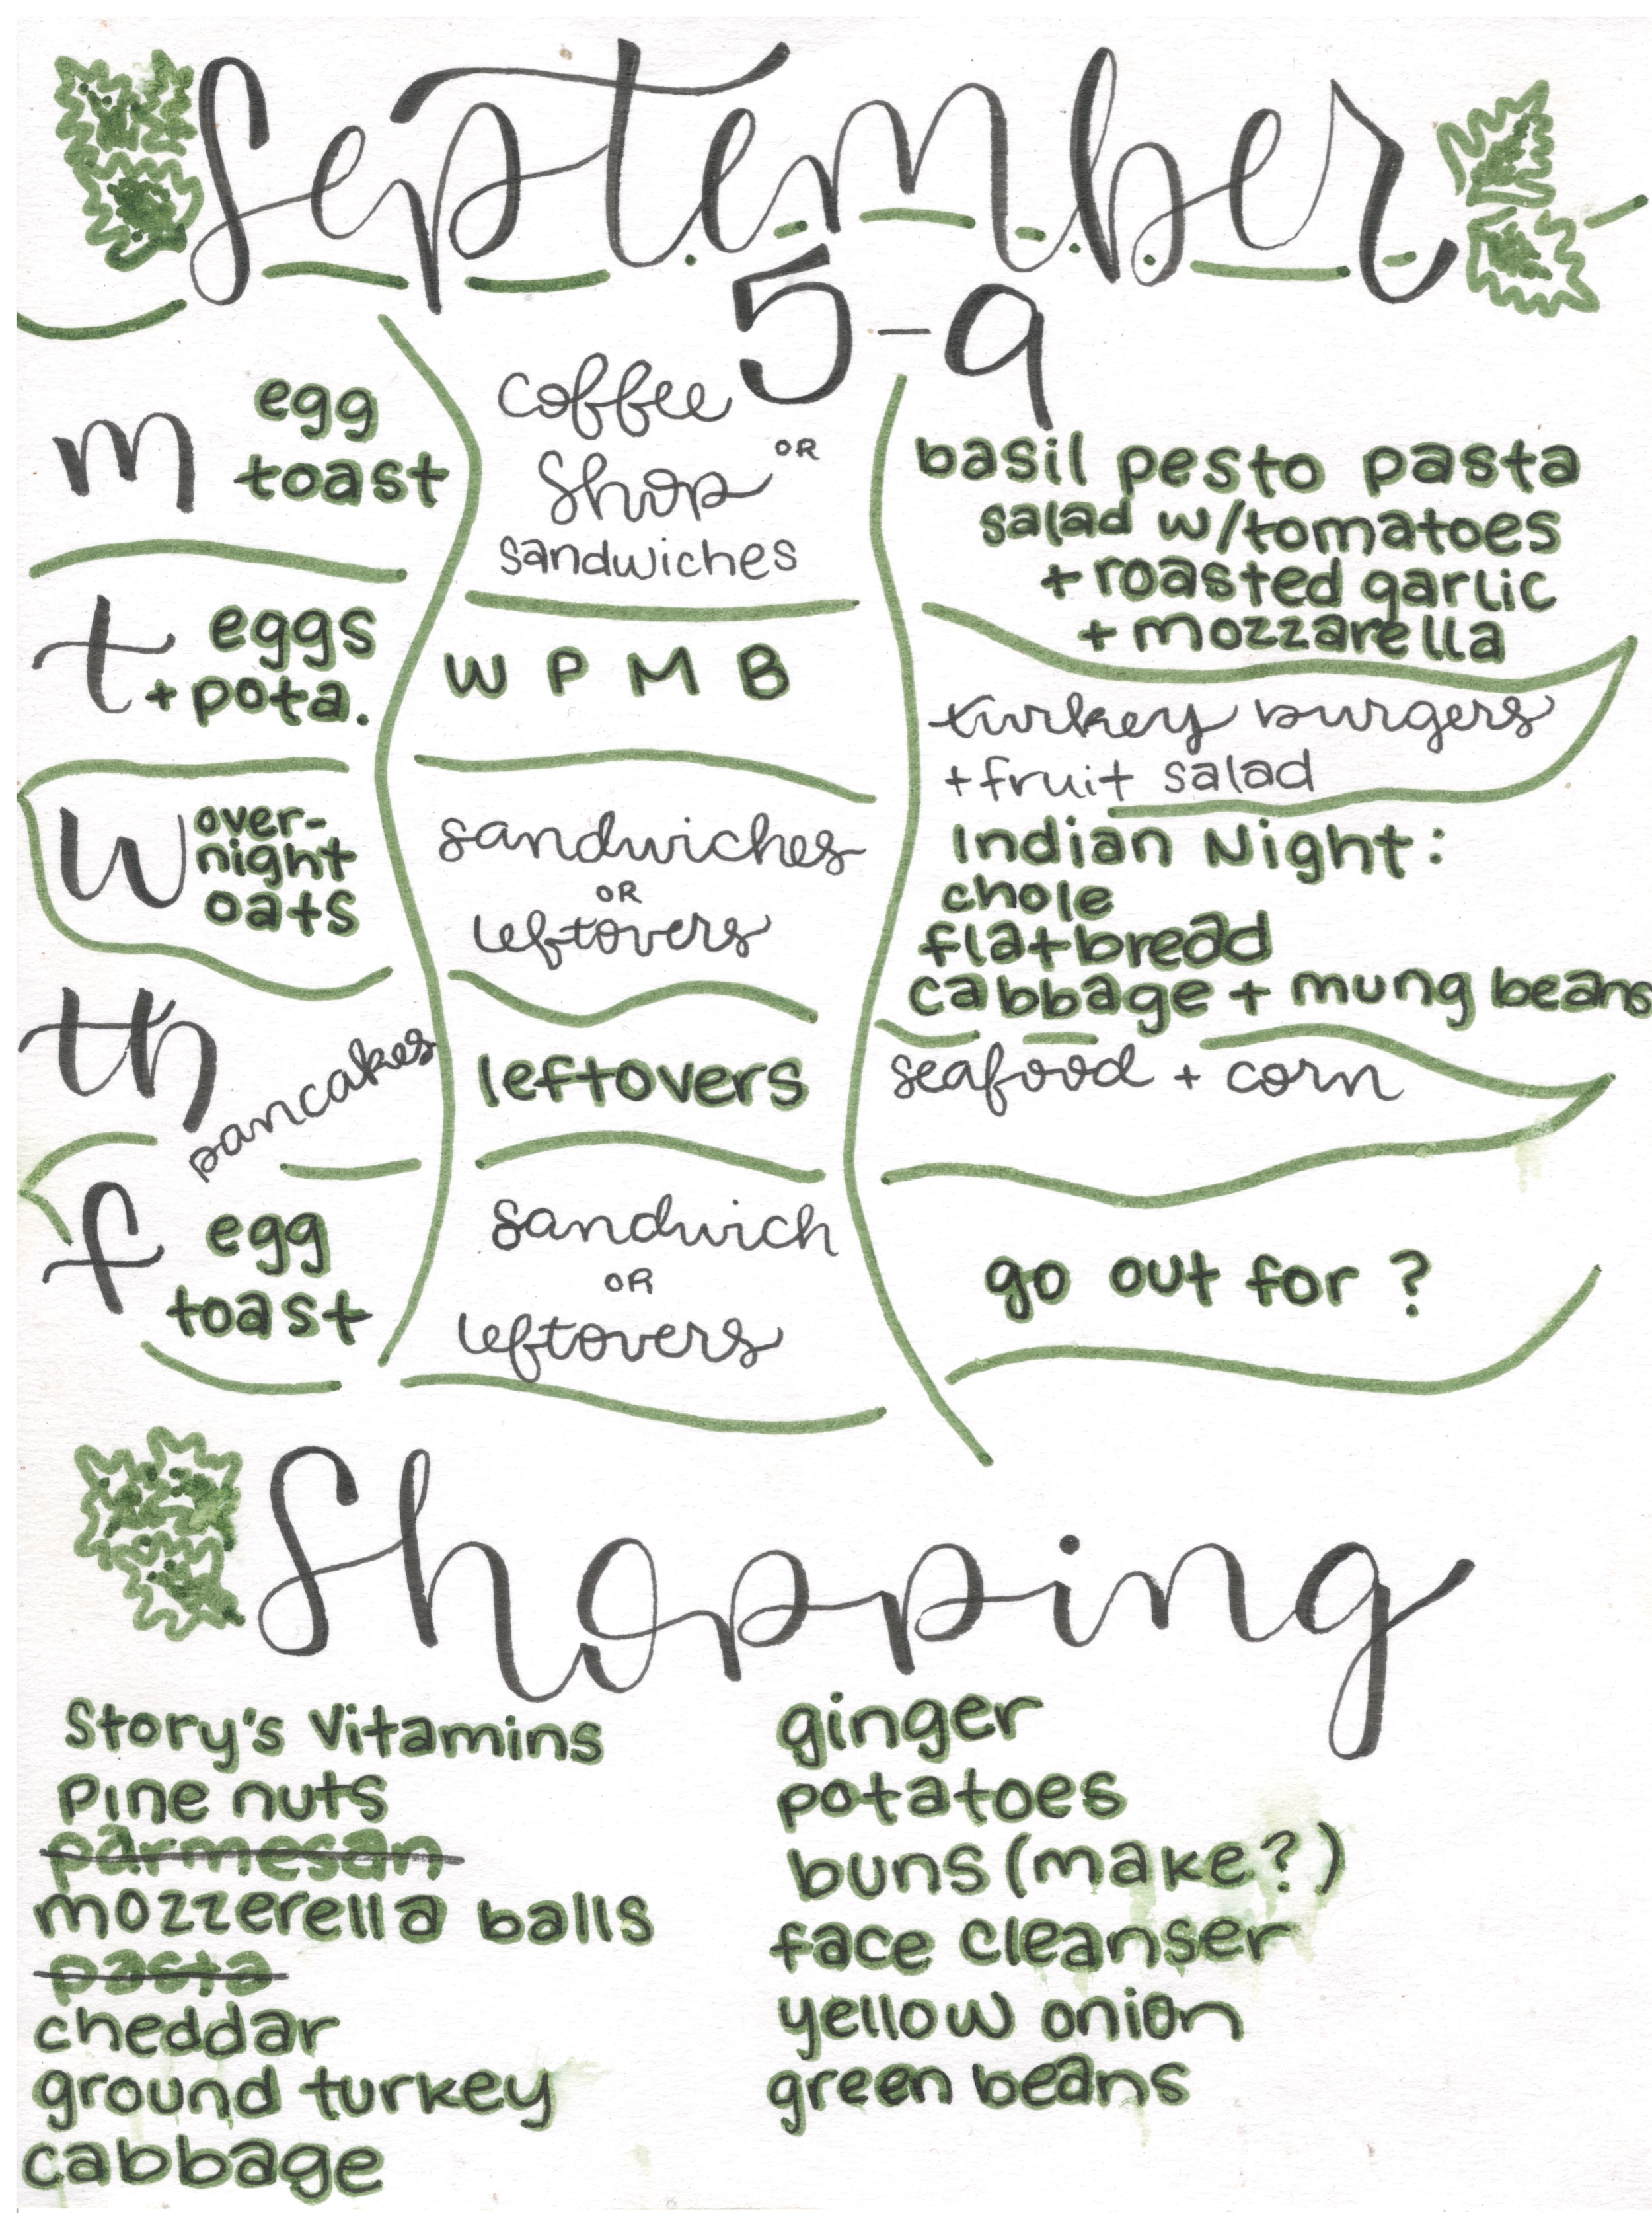 September
5-9
m
egg
toast
coffee
shop OR
sandwiches
basil pesto pasta
salad w/tomatoes
+ roasted garlic
+ mozzarella
t
eggs
+ pota.
W P M B
turkey burgers
+ fruit salad
W
over-
night
oats
sandwiches
OR
leftovers
Indian Night:
chole
flatbread
cabbage + mung beans
th
pancakes
leftovers
seafood + corn
f
egg
toast
sandwich
OR
leftovers
go out for ?
Shopping
Story's Vitamins
Pine nuts
parmesan
mozzerella balls
pasta
cheddar
ground turkey
cabbage
ginger
potatoes
buns (make?)
face cleanser
yellow onion
green beans